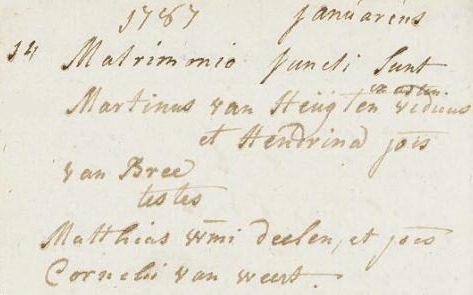 1787 januarius
14 Matrimonio Juncti Sunt
Martinus van Heijgten viduus
et Hendrina jois
van Bree
testes
Matthias wmi deelen, et jois
Cornelii van weert.